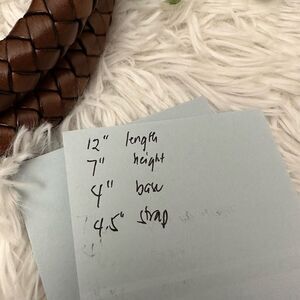 12" length
7" height
4" base
4.5" strap